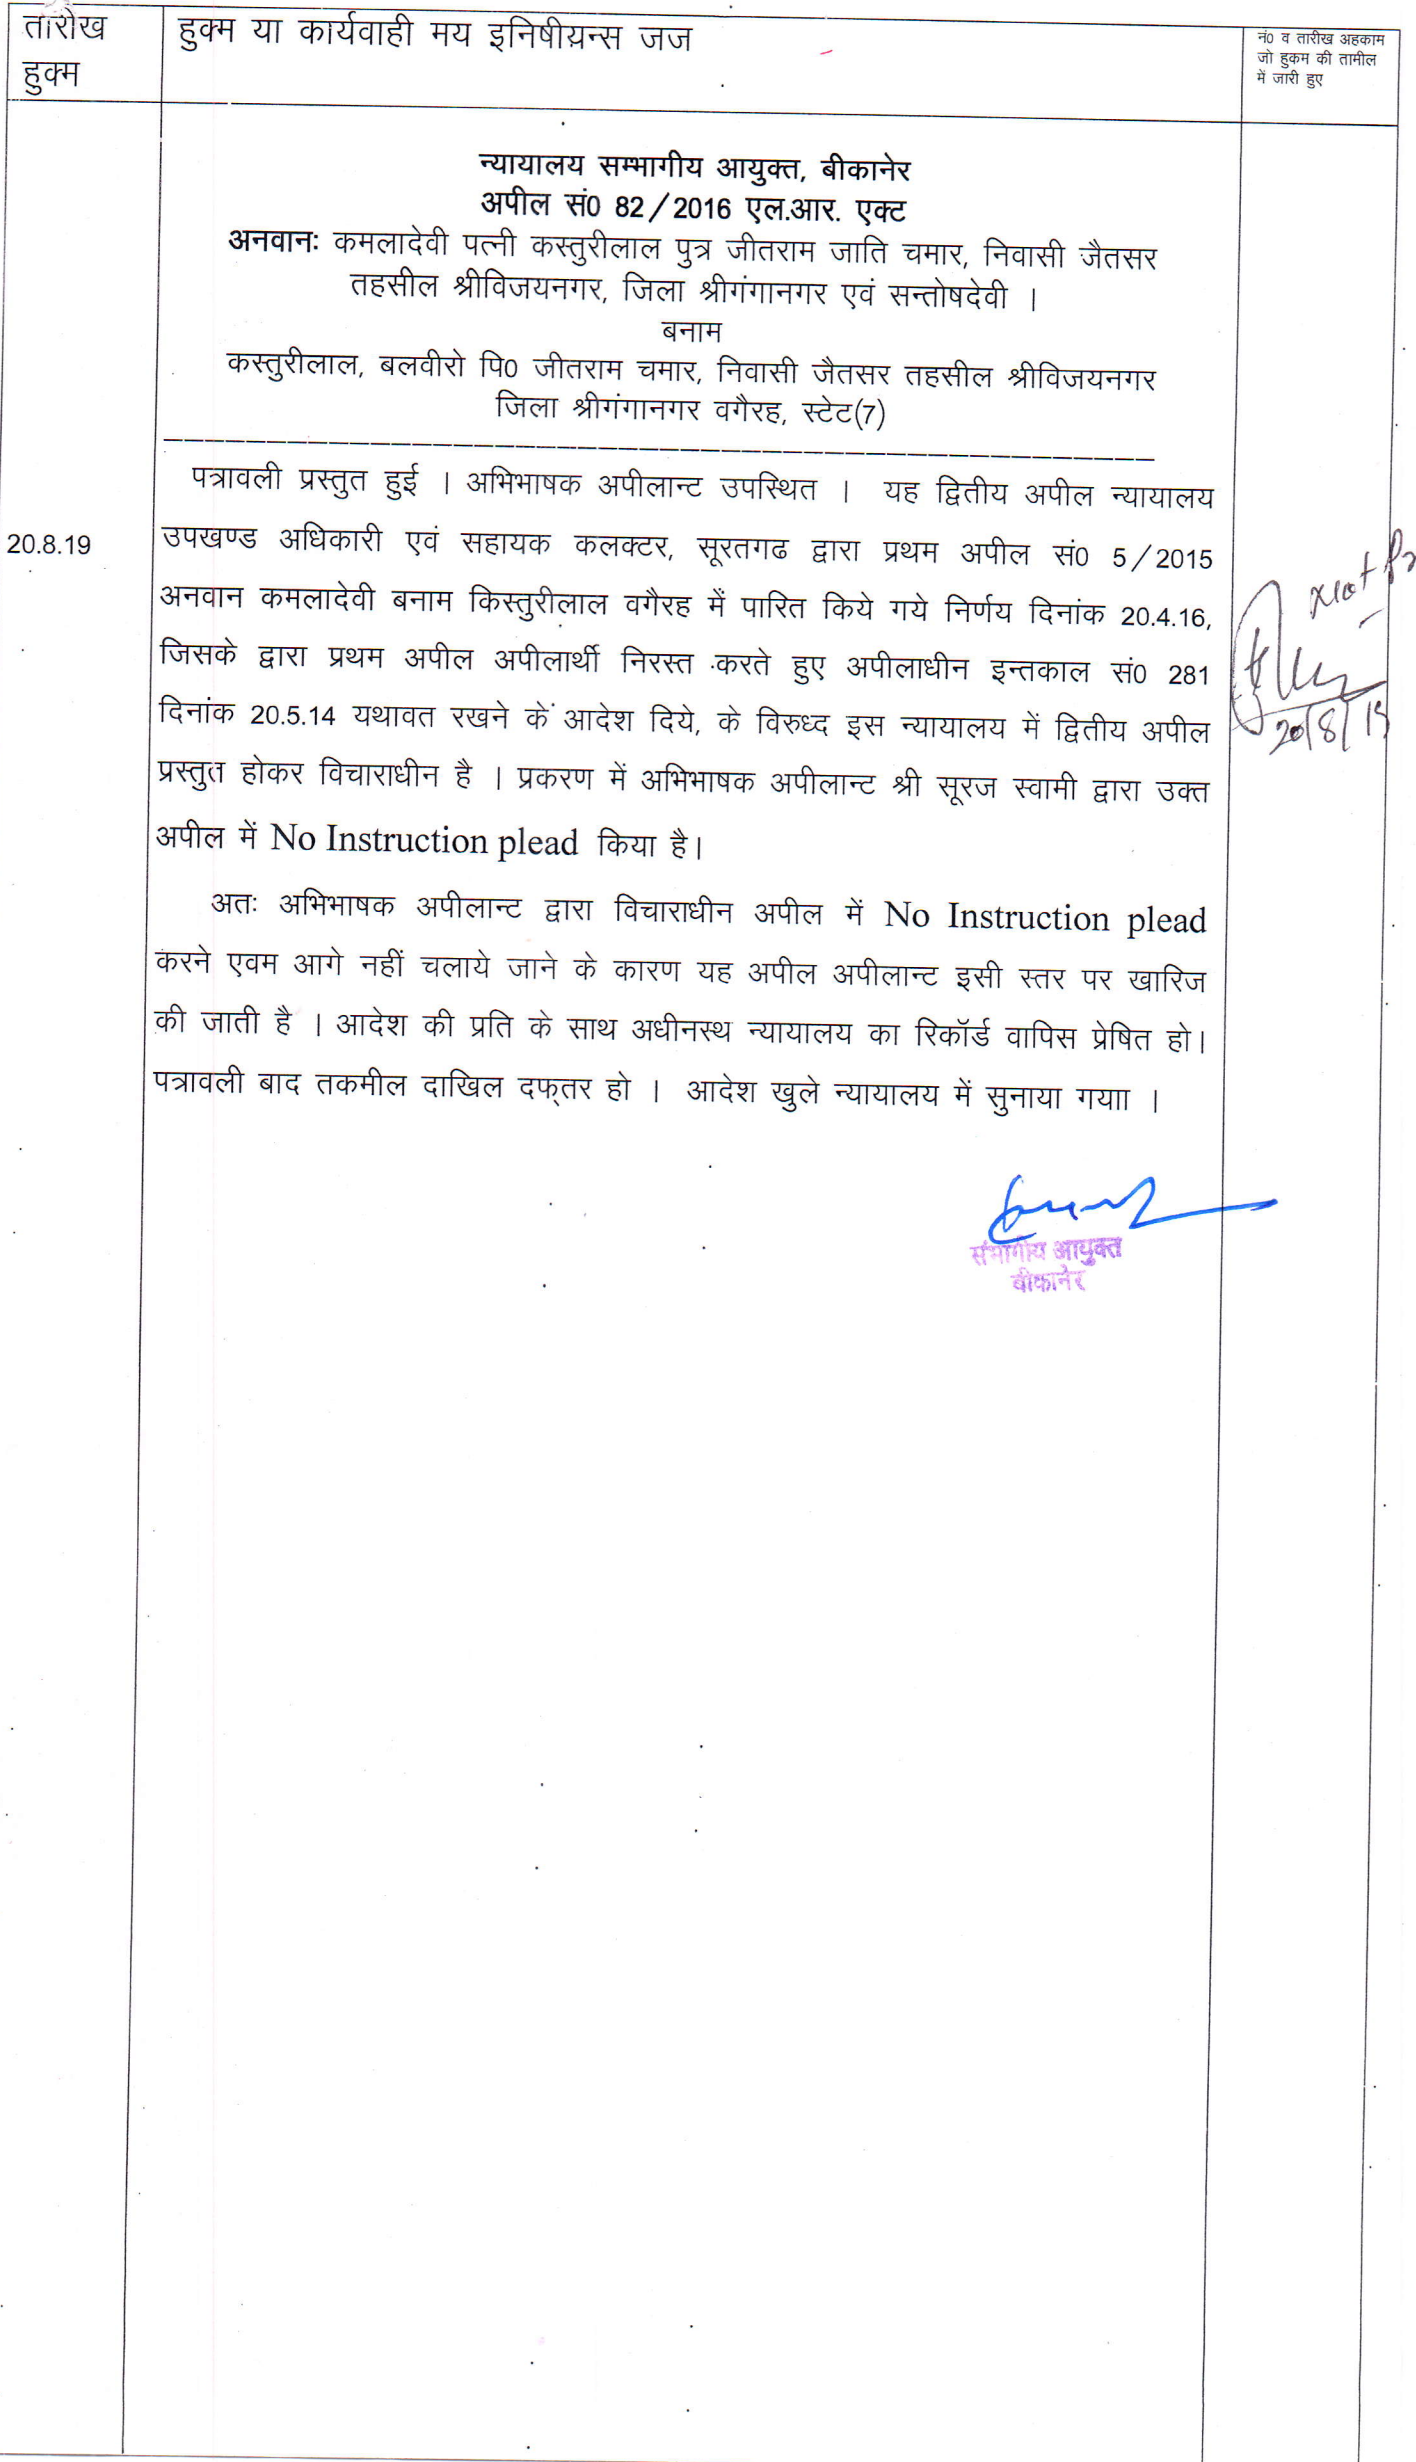 तारीख
हुक्म
हुक्म या कार्यवाही मय इनिषीयन्स जज
नं0 व तारीख अहकाम
जो हुकम की तामील
में जारी हुए
न्यायालय सम्भागीय आयुक्त, बीकानेर
अपील सं0 82/2016 एल.आर. एक्ट
अनवानः कमलादेवी पत्नी कस्तुरीलाल पुत्र जीतराम जाति चमार, निवासी जैतसर
तहसील श्रीविजयनगर, जिला श्रीगंगानगर एवं सन्तोषदेवी ।
बनाम
कस्तुरीलाल, बलवीरो पि0 जीतराम चमार, निवासी जैतसर तहसील श्रीविजयनगर
जिला श्रीगंगानगर वगैरह, स्टेट(7)
पत्रावली प्रस्तुत हुई । अभिभाषक अपीलान्ट उपस्थित । यह द्वितीय अपील न्यायालय
20.8.19
उपखण्ड अधिकारी एवं सहायक कलक्टर, सूरतगढ द्वारा प्रथम अपील सं0 5/2015
अनवान कमलादेवी बनाम किस्तुरीलाल वगैरह में पारित किये गये निर्णय दिनांक 20.4.16,
जिसके द्वारा प्रथम अपील अपीलार्थी निरस्त करते हुए अपीलाधीन इन्तकाल सं0 281
दिनांक 20.5.14 यथावत रखने कें आदेश दिये, के विरुध्द इस न्यायालय में द्वितीय अपील
प्रस्तुत होकर विचाराधीन है । प्रकरण में अभिभाषक अपीलान्ट श्री सूरज स्वामी द्वारा उक्त
अपील में No Instruction plead किया है।
अतः अभिभाषक अपीलान्ट द्वारा विचाराधीन अपील में No Instruction plead
करने एवम आगे नहीं चलाये जाने के कारण यह अपील अपीलान्ट इसी स्तर पर खारिज
की जाती है । आदेश की प्रति के साथ अधीनस्थ न्यायालय का रिकॉर्ड वापिस प्रेषित हो।
पत्रावली बाद तकमील दाखिल दफ्तर हो । आदेश खुले न्यायालय में सुनाया गयाा ।
20/8/19
संभागीय आयुक्त
बीकानेर